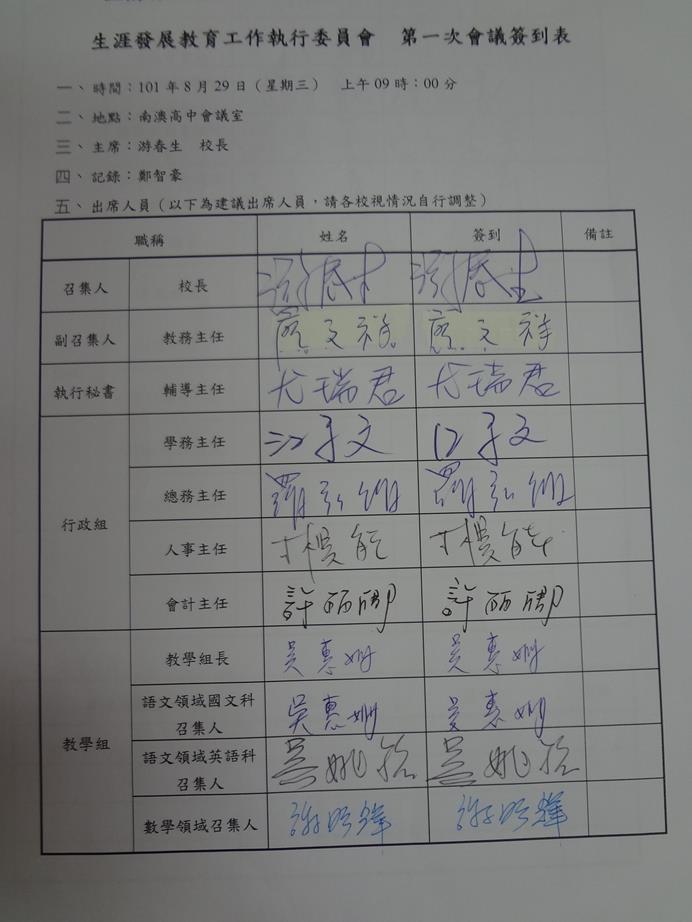 生涯發展教育工作執行委員會　第一次會議簽到表
一、時間：101 年 8 月 29 日（星期三）　上午 09 時：00 分
二、地點：南澳高中會議室
三、主席：游春生　校長
四、記錄：鄭智豪
五、出席人員（以下為建議出席人員，請各校視情況自行調整）
職稱　姓名　簽到　備註
召集人　校長　游春生　游春生
副召集人　教務主任　廖文祥　廖文祥
執行秘書　輔導主任　尤瑞君　尤瑞君
學務主任　江子文　江子文
總務主任　羅
行政組
人事主任
會計主任　許　許
教學組長　吳惠姍　吳惠姍
語文領域國文科
召集人　吳惠姍　吳惠姍
教學組
語文領域英語科
召集人　吳　吳
數學領域召集人　謝　謝